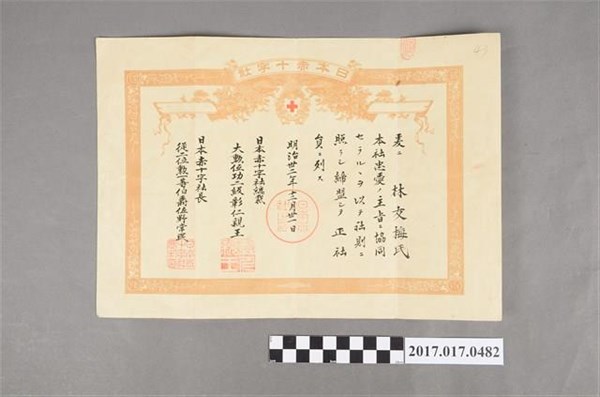 社字十赤本日
茲ニ 林文振氏
本社忠愛ノ主旨ニ協同
セラルヽヲ以テ法則ニ
照ラシ締盟シテ正社
員ニ列ス
明治卅二年十二月卅一日
日本赤十字社總裁
大勲位功二級彰仁親王
日本赤十字社長
從二位勲一等伯爵佐野常民
43
2017.017.0482